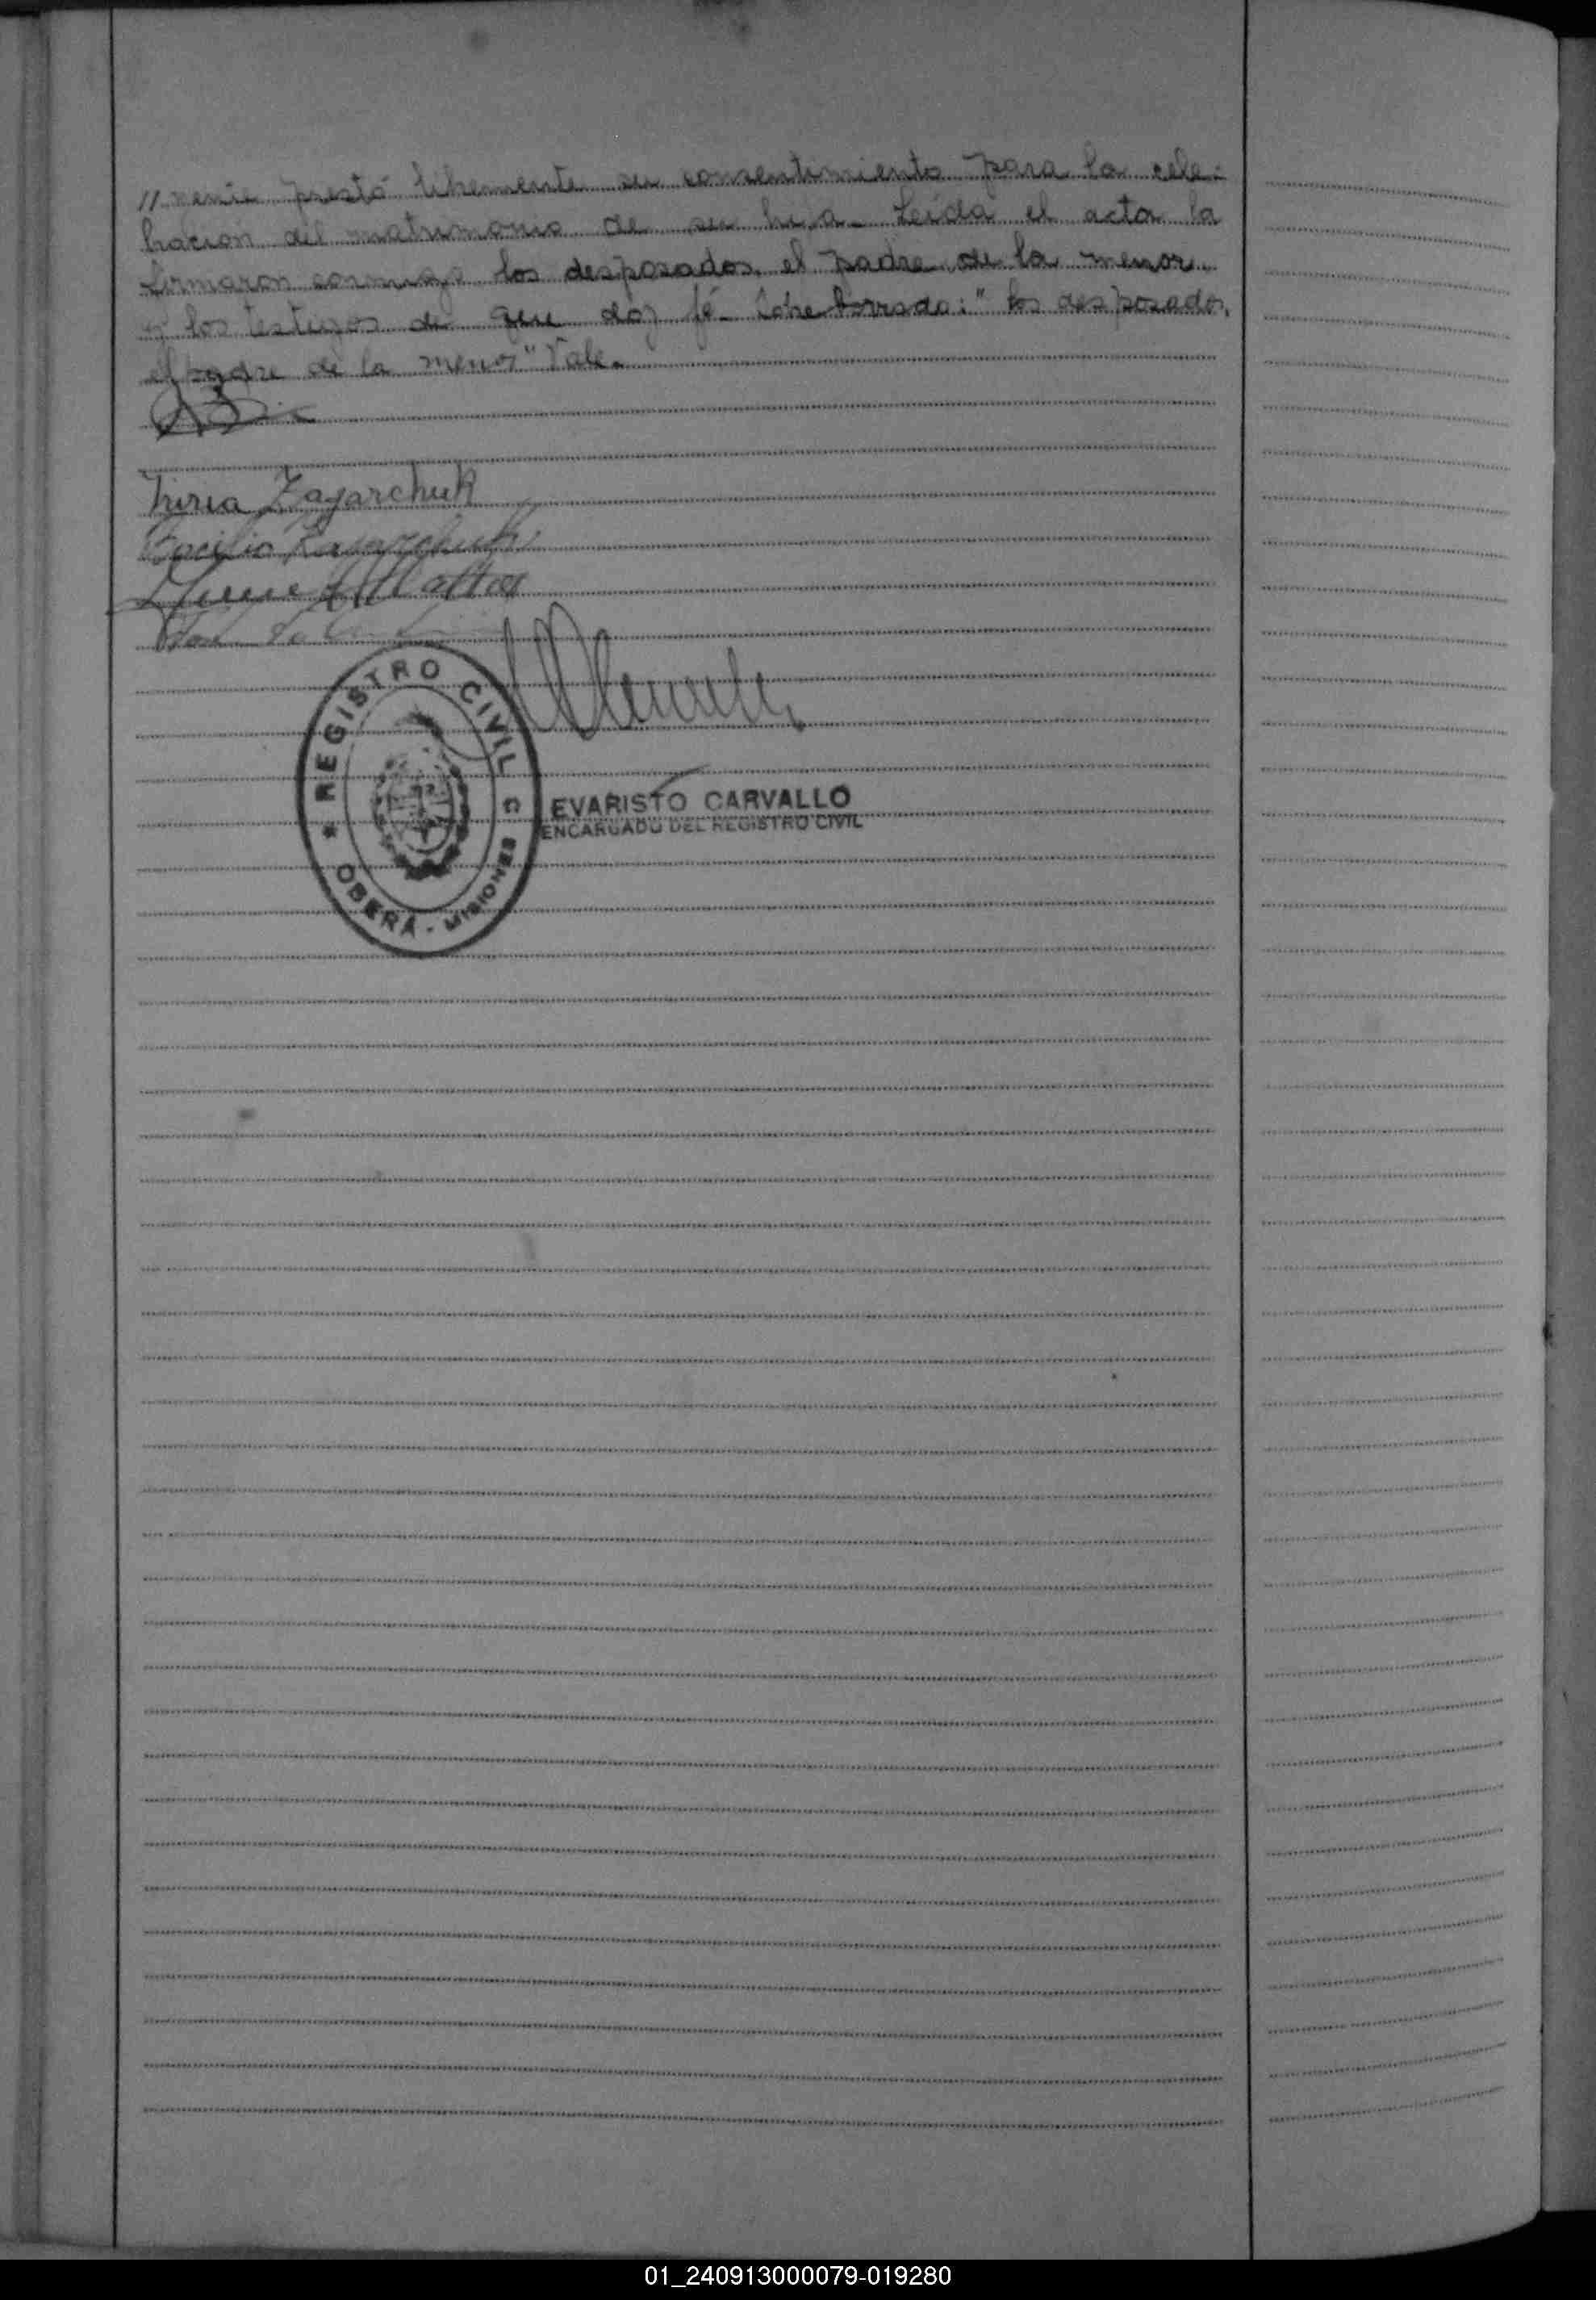 presto libremente su consentimiento para la cele-
bracion del matrimonio de su hija. Leida el acta la
firmaron conmigo los desposados, el padre de la menor
y los testigos de que doy fé. Sobre borrado: "los desposados,
el padre de la menor" Vale.
Zagarchuk
Bacilio
Mattos
REGISTRO CIVIL
OBERÁ - MISIONES
EVARISTO CARVALLO
ENCARGADO DEL REGISTRO CIVIL
01_240913000079-019280